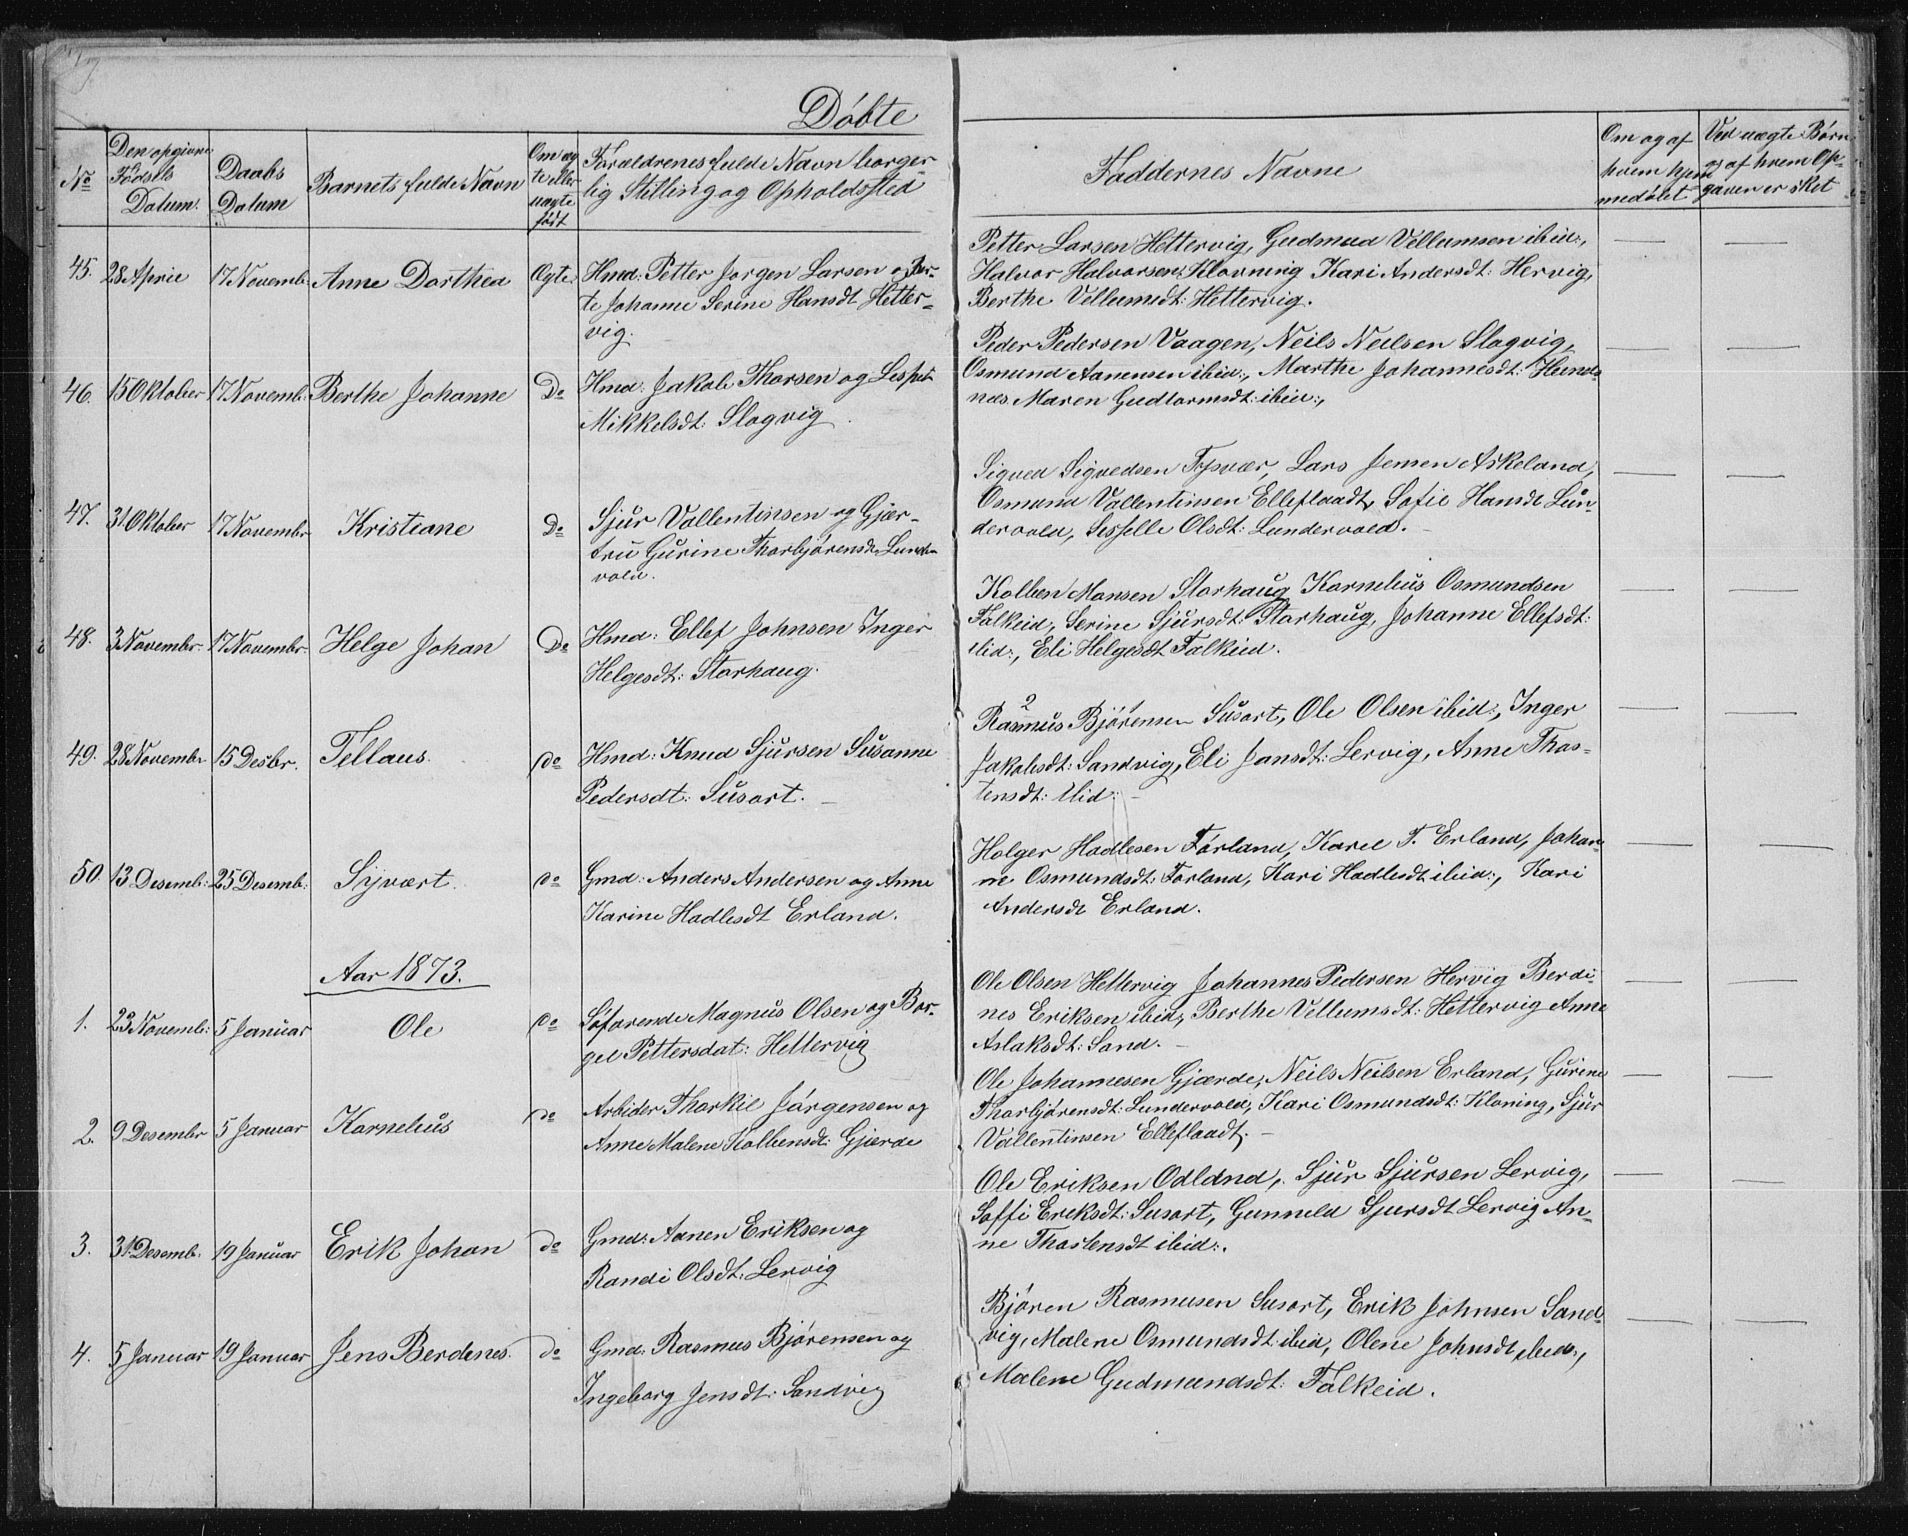 Døbte
No
Den opgivne Fødsels Datum.
Daabs Datum
Barnets fulde Navn
Om ægte eller uægte født
Forældrenes fulde Navn borgerlig Stilling og Opholdssted
Faddernes Navne
Om og af hvem hjemmedøbt
Ved uægte Børn af hvem Opgaven er sket
45. 28 April 17 Novemb: Anne Dorthea Ægte
Hmd: Petter Jørgen Larsen og Ber-
te Johanne Serine Hansdt Hetter-
vig.
Petter Larsen Hettervig, Gudmud Vellumsen ibid:,
Halvor Halvorsen Klovning Kari Andersdt: Hervig,
Berthe Vellumsdt: Hettervig.
46. 15 Oktober 17 Novemb: Berthe Johanne Do
Hmd: Jakob Thorsen og Lisbet
Mikkelsdt: Slogvig.
Peder Pedersen Vaagen, Neils Neilsen Slogvig,
Osmund Aanensen ibid:, Marthe Johannesdt: Hunds-
næs Maren Gudtormsdt: ibid:,
47. 31 Oktober 17 Novembr Kristiane Do
Sjur Vallentinsen og Gjær-
tru Gurine Thorbjørensdt Lunder-
vold.
Sigved Sigvedsen Tysvær, Lars Jensen Askeland,
Osmund Vallentinsen Elleflaadt, Sofie Hansdt Lun-
dervold, Sisselle Olsdt: Lundervold.
48. 3 Novembr 17 Novembr. Helge Johan Do
Hmd: Ellef Johnsen Inger
Helgesdt: Storhaug.
Kolben Monsen Storhaug Kornelius Osmundsen
Falkeid, Serine Sjursdt: Storhaug, Johanne Ellefsdt:
ibid:, Eli Helgesdt Falkeid.
49. 28 Novembr 15 Desbr. Tellaus. do
Hmd: Knud Sjursen Susanne
Pedersdt: Susort. –
Rasmus Bjørensen Susort, Ole Olsen ibid:, Inger
Jakobsdt: Sandvig, Eli Jansdt: Lervig, Anne Thos-
tensdt: ibid: –
50. 13 Desemb: 25 Desemb: Syvært. do
Gmd: Anders Andersen og Anne
Karine Hadlesdt Erland.
Holger Hadlesen Førland, Karel T. Erland, Johan-
ne Osmundsdt: Førland, Kari Hadlesdt ibid:, Kari
Andersdt Erland.
Aar 1873.
1. 23 Novemb: 5 Januar Ole do
Søfarende Magnus Olsen og Bor-
gel Pettersdat: Hettervig
Ole Olsen Hettervig Johannes Pedersen Hervig Berdi-
nes Eriksen ibid:, Berthe Vellumsdt: Hettervig Anne
Aslaksdt: Sand. –
2. 9 Desembr 5 Januar Kornelius do
Arbider Thorkil Jørgensen og
Anne Malene Kolbensdt: Gjærde
Ole Johannesen Gjærde, Neils Neilsen Erland, Gurine
Thorbjørensdt: Lundervold, Kari Osmundsdt: Kloning, Sjur
Vallentinsen Elleflaadt. –
3. 31 Desemb. 19 Januar Erik Johan do
Gmd: Aanen Eriksen og
Randi Olsdt: Lervig
Ole Eriksen Odland, Sjur Sjursen Lervig,
Soffi Eriksdt: Susort, Gunneld Sjursdt Lervig An-
ne Thostensdt ibid:.
4. 5 Januar 19 Januar Jens Berdines. do
Gmd: Rasmus Bjørensen og
Ingeborg Jensdt: Sandvig
Bjøren Rasmusen Susort, Erik Johnsen Sand-
vig, Malene Osmundsdt: ibid, Olene Johnsdt ibid:,
Malene Gudmundsdt: Falkeid.